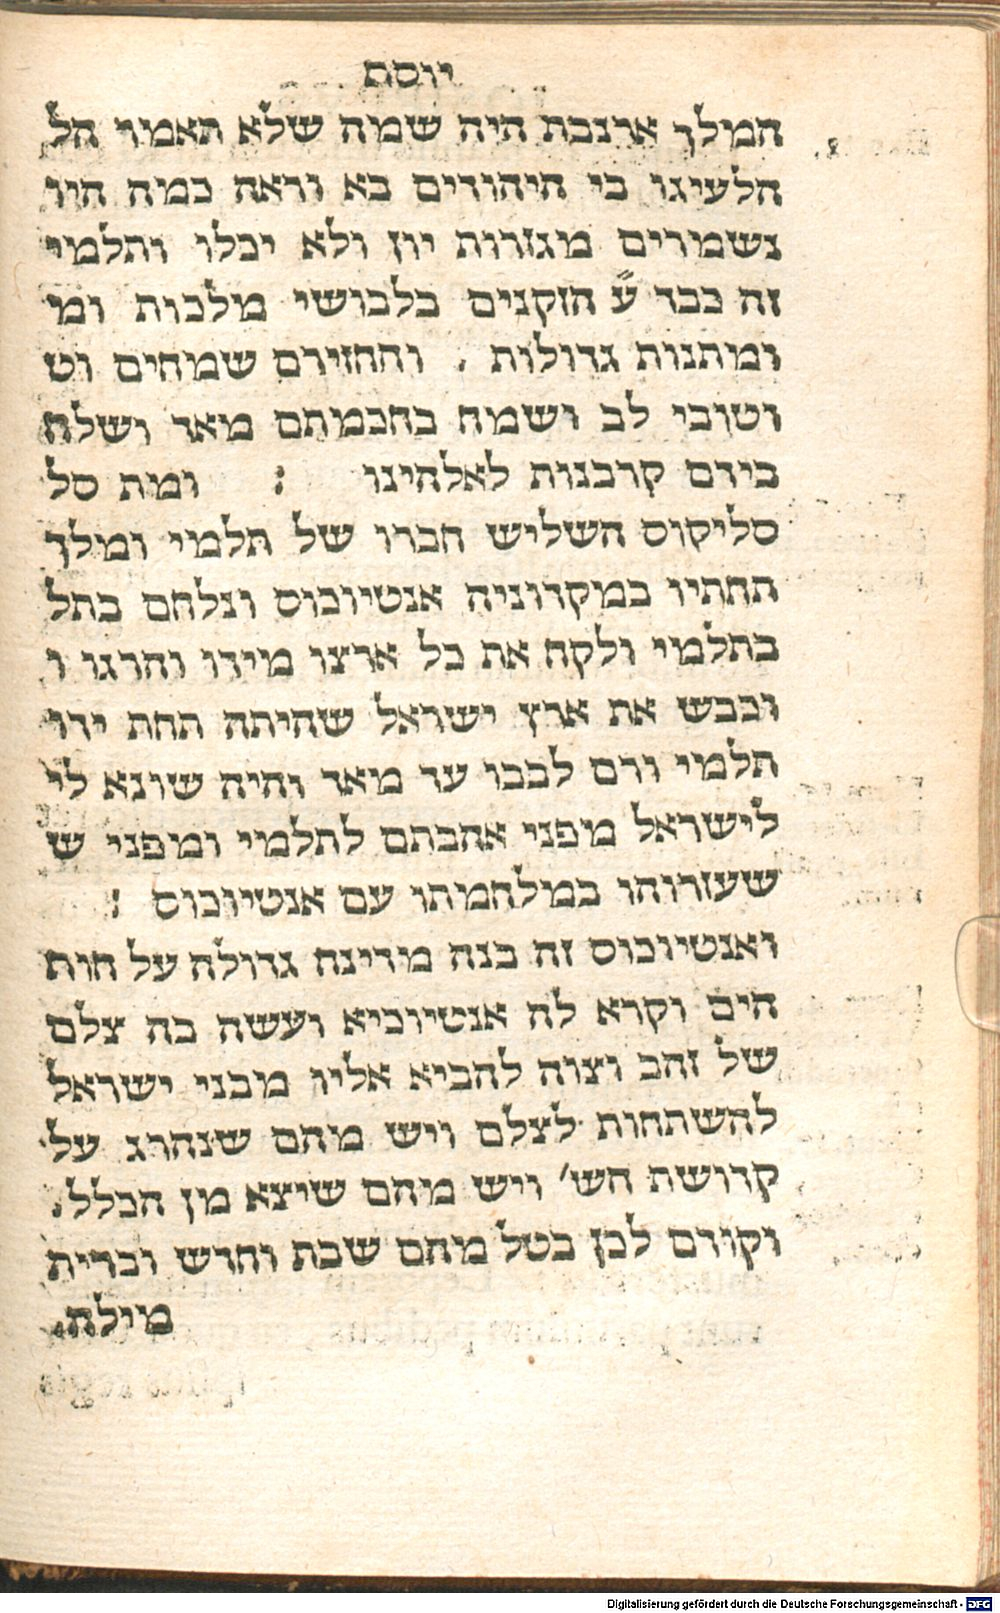 יוסף
המלך ארנבת היה שמה שלא תאמר הל
הלעיגו בי היהודים בא וראה כמה היו
נשמרים מגזרות יון ולא יכלו ותלמי
זה כבד ע״ הזקנים בלבושי מלכות ומ
ומתנות גדולות . והחזירם שמחים וט
וטובי לב ושמח בחכמתם מאד ושלח
בידם קרבנות לאלהינו : ומת סל
סליקוס השליש חברו של תלמי ומלך
תחתיו במקדוניה אנטיוכוס ונלחם בתל
בתלמי ולקח את כל ארצו מידו והרגו ו
וכבש את ארץ ישראל שהיתה תחת ידו
תלמי ורם לבבו עד מאד והיה שונא לי
לישראל מפני אהבתם לתלמי ומפני ש
שעזרוהו במלחמתו עם אנטיוכוס :
ואנטיוכוס זה בנה מדינה גדולה על חות
הים וקרא לה אנטיוכיא ועשה בה צלם
של זהב וצוה להביא אליו מבני ישראל
להשתחות לצלם ויש מהם שנהרג על
קדושת הש׳ ויש מהם שיצא מן הכלל.
וקודם לכן בטל מהם שבת וחדש וברית
מילה.
Digitalisierung gefördert durch die Deutsche Forschungsgemeinschaft - DFG